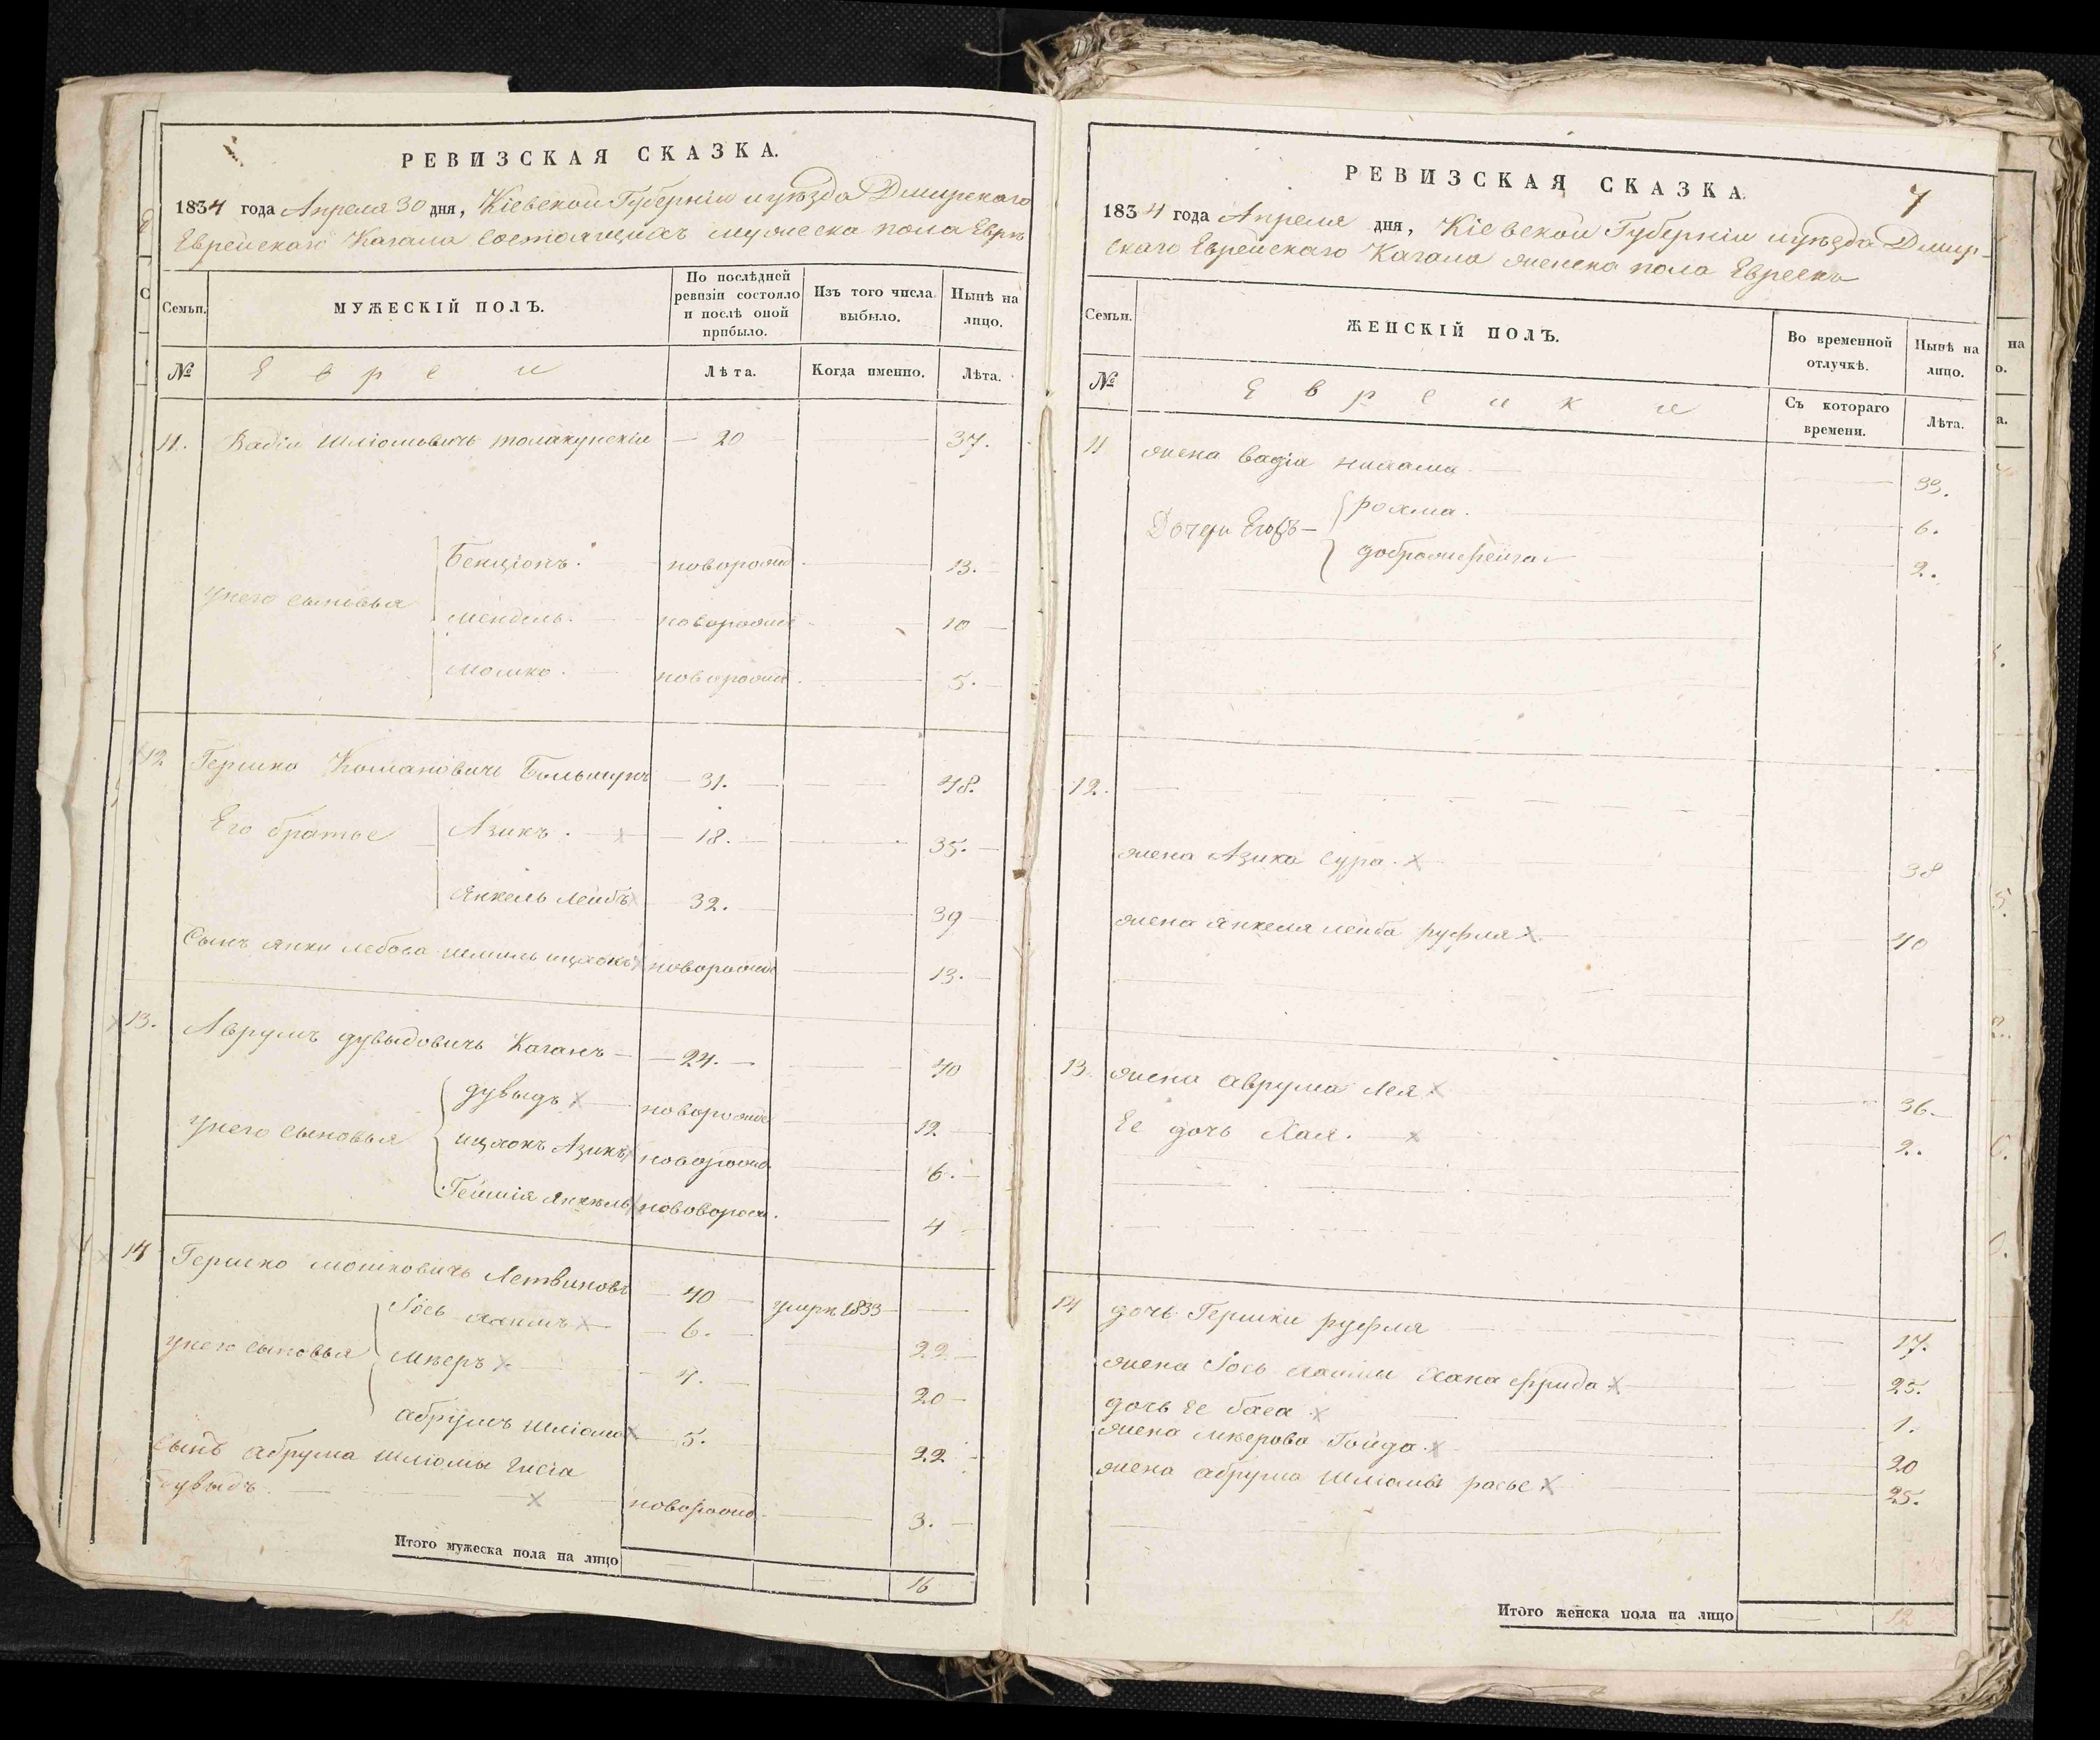 РЕВИЗСКАЯ СКАЗКА.
1834 года Апреля 30 дня, Кіевской Губерніи и уѣзда Дмирскаго
Еврейскаго Кагала состоящихъ мужеска пола Евре
Семьи. МУЖЕСКІЙ ПОЛЪ. По послѣдней ревизіи состояло и послѣ оной прибыло. Изъ того числа выбыло. Нынѣ на лицо.
№ Евреи Лѣта. Когда именно. Лѣта.
11. Вадіи Шліомовичъ 20 37.
у него сыновья
Бенціонъ. новорожд. 13.
Мендель. новорожд 10
Мошко. новорожд. 5.
12 Гершко 31. 48.
Его братье Азикъ. 18. 35.
Янкель Лейбъ 32. 39
Сынъ Янки новорожд 13.
13. Аврумъ Дувыдовичъ Каганъ 24. 40
у него сыновья
Дувыдъ новорожд 12
Ицхокъ Азикъ новорожд. 6.
Янкель 4
14 Гершко Мошковичъ Летвиновъ 40 умре 1833
Іось 6. 22
у него сыновья Мееръ 4. 20
Абрумъ Шліома 5. 22
сынъ Абрума Шліомы
дувыдъ. новорожд. 3.
Итого мужеска пола на лицо 16
7
РЕВИЗСКАЯ СКАЗКА.
1834 года Апреля дня, Кіевской Губерніи и уѣзда Дмир-
скаго Еврейскаго Кагала женска пола Евреекъ
Семьи. ЖЕНСКІЙ ПОЛЪ. Во временной отлучкѣ. Нынѣ на лицо.
№ Еврейки Съ котораго времени. Лѣта.
11 жена Вадіи 33.
Дочери Его 6.
2.
12.
жена Азика Сура. 38
жена Янкеля Лейба Руфля 40
13. жена Аврума Лея 36.
Ее дочь Хая. 2.
14 дочь Гершки Руфля 17.
жена Іось Хана Фрида 25.
дочь Ее Баса 1.
жена Мерова Гойда 20
жена Абрума Шліомы 25.
Итого женска пола на лицо 12